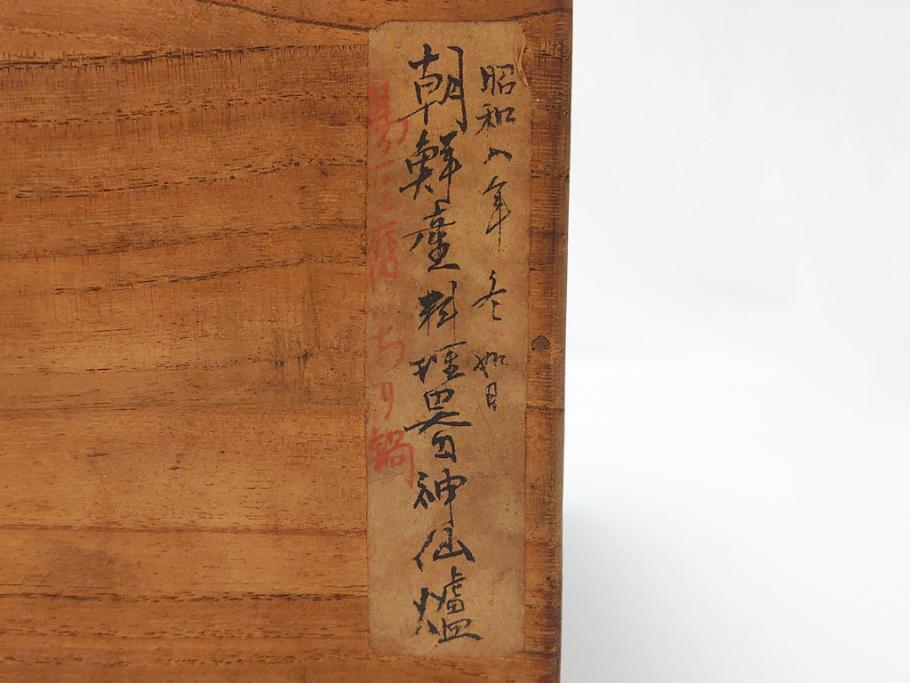 昭和八年 冬 如月
朝鮮産料理器神仙爐
ちり鍋